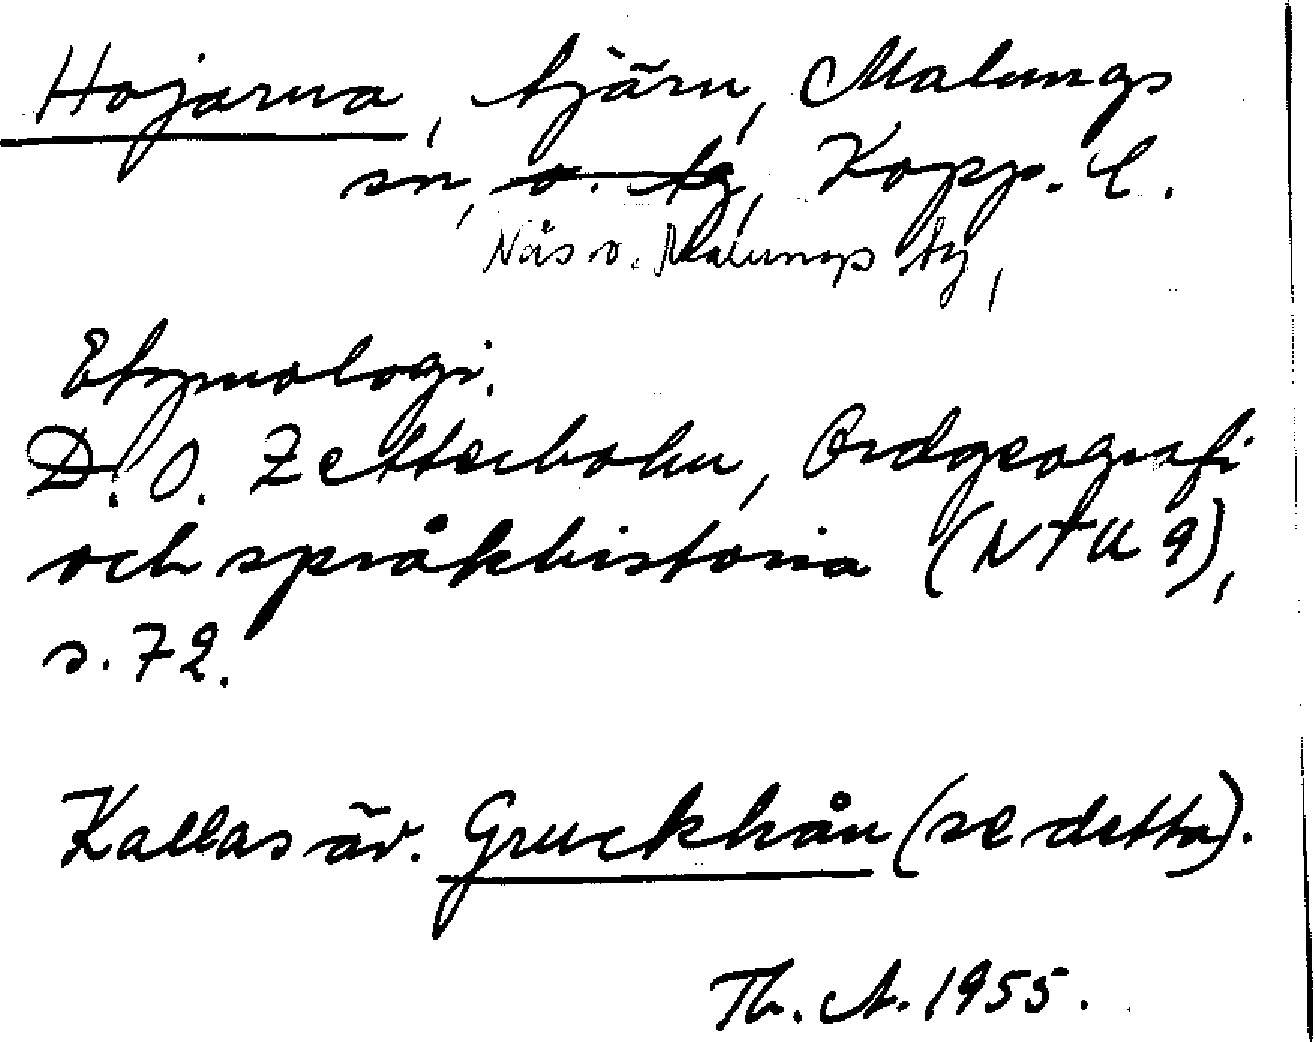 Hojarna, tjärn, Malungs
sn, o. tg, Kopp. l.
Nås o. Malungs tg,
Etymologi.
D. O. Zetterholm, Ordgeografi
och språkhistoria (NTU 9),
s. 72.
Kallas äv. Gruckhån (se detta).
Th. A. 1955.